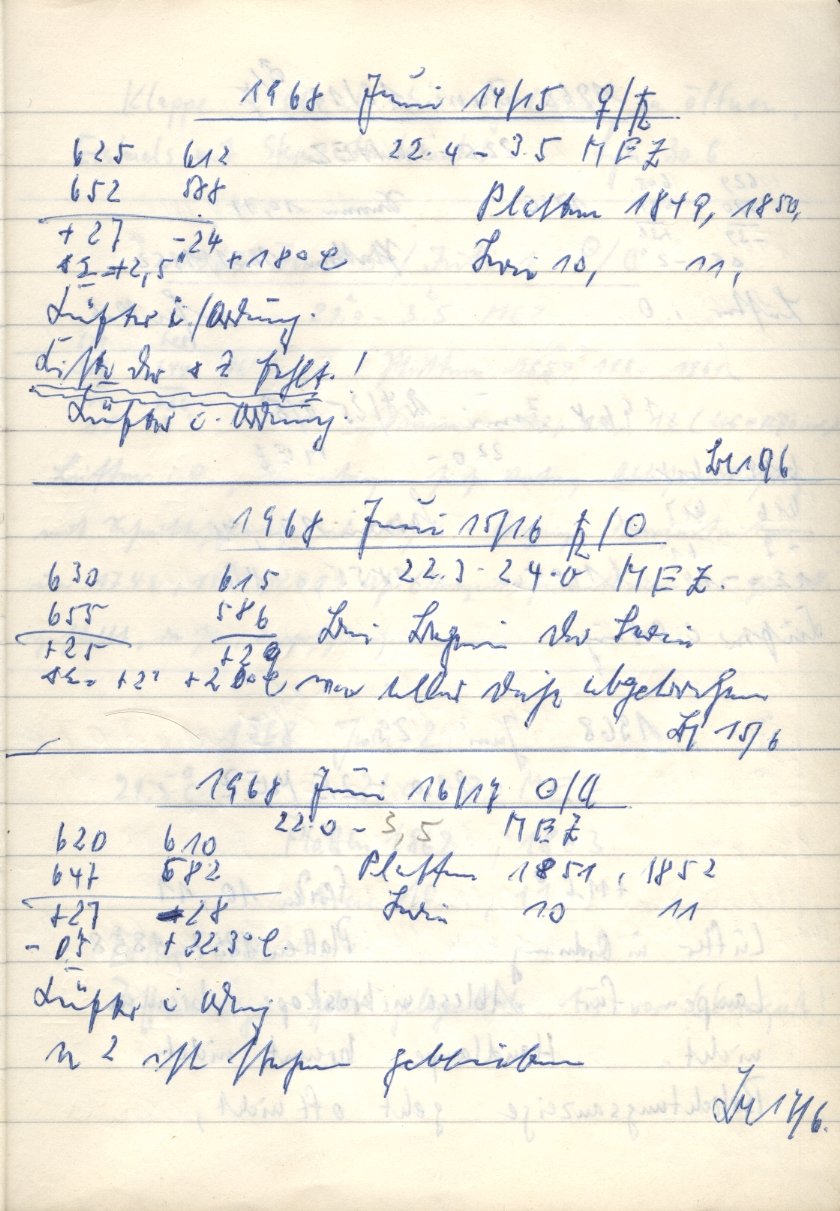 1968 Juni 14/15 ♀/♄
625 612 22.4 - 3.5 MEZ
652 588 Platten 1849, 1850,
+27 -24
+2,5 +18°C Serie 10, 11,
Lüfter i. Ordnung.
Liste der fehlt!
Lüfter i. Ordnung.
1968 Juni 15/16 ♄/☉
630 615 22.3 - 24.0 MEZ.
655 586 Beginn der Serie
+25 +29
+2 °C war alles abgebrochen
15/6
1968 Juni 16/17 ☉/☾
22.0 - 3,5 MEZ
620 610
647 582 Platten 1851, 1852
+27 28 Serie 10 11
- 0,5 +22.3°C
Lüfter i Ordng
n 2 ist stehen geblieben
17/6.